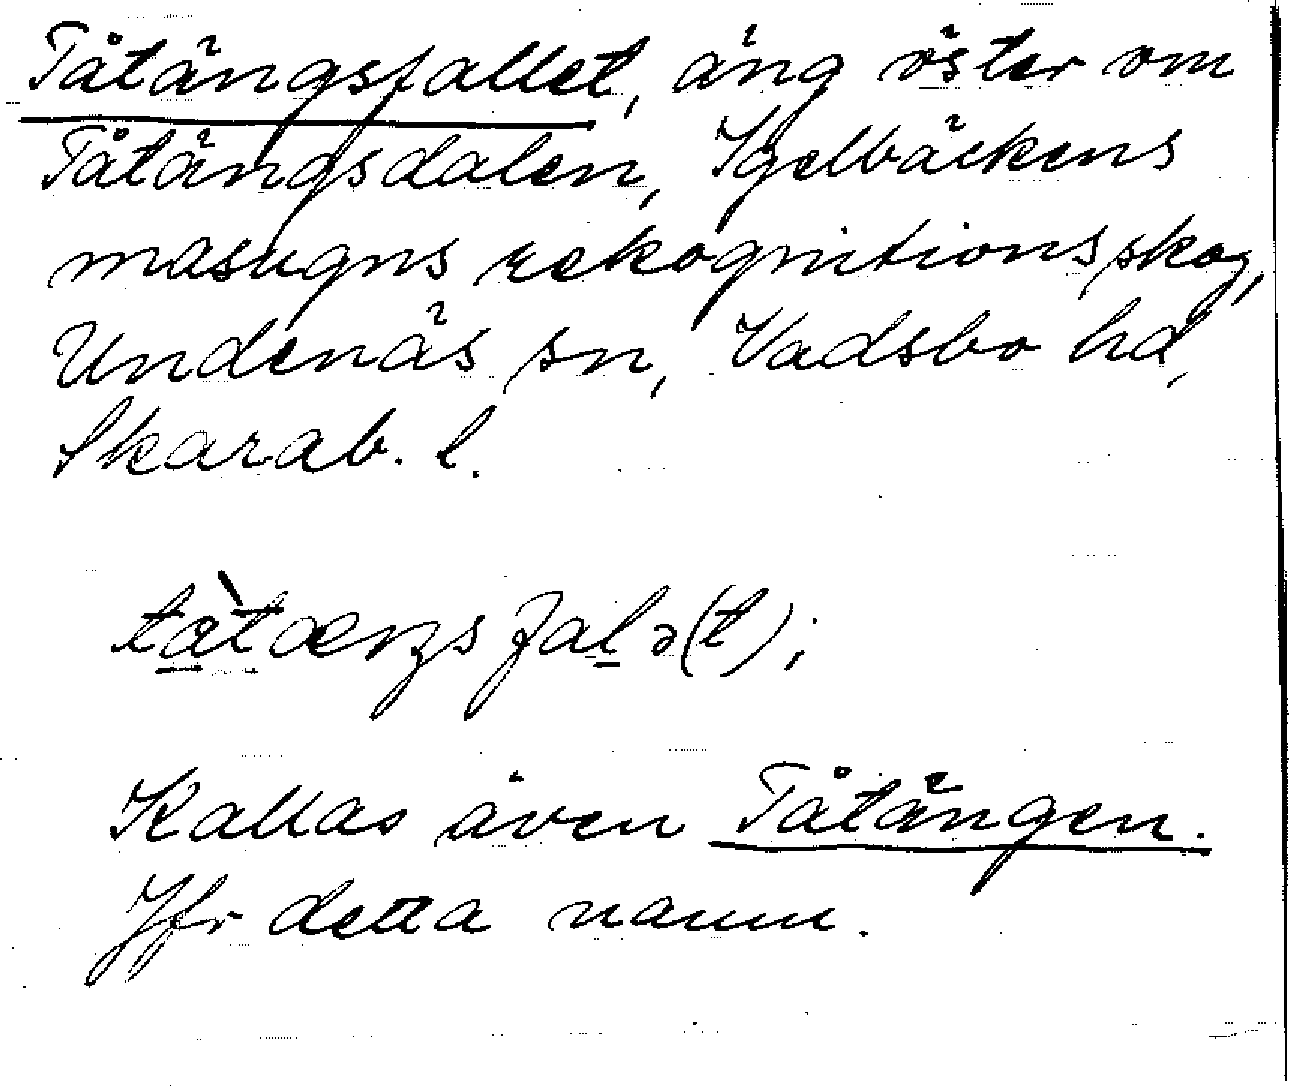 Tåtängsfallet, äng öster om
Tåtängsdalen, Igelbäckens
masugns rekognitionsskog,
Undenäs sn, Vadsbo hd,
Skarab. l.
tàtæŋsfalə(t);
Kallas även Tåtängen.
Jfr detta namn.